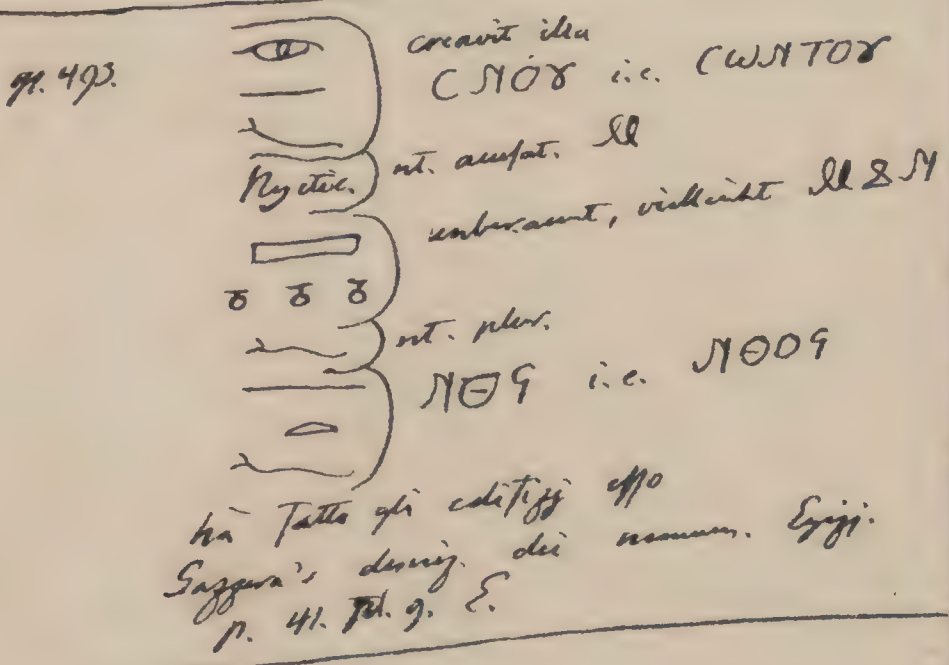 creavit illa
CⲚOⲨ i.e. CⲰⲚTOⲨ
Nyctic. nt. accusat. Ⲙ
unbekannt, vielleicht Ⲙ & Ⲛ
nt. plur.
ⲚΘϤ i.e. ⲚΘOϤ
hà Tatto gli edifizj esso
Gazzera's descriz. dei monum. Egizj.
p. 41. Pl. 9. E.